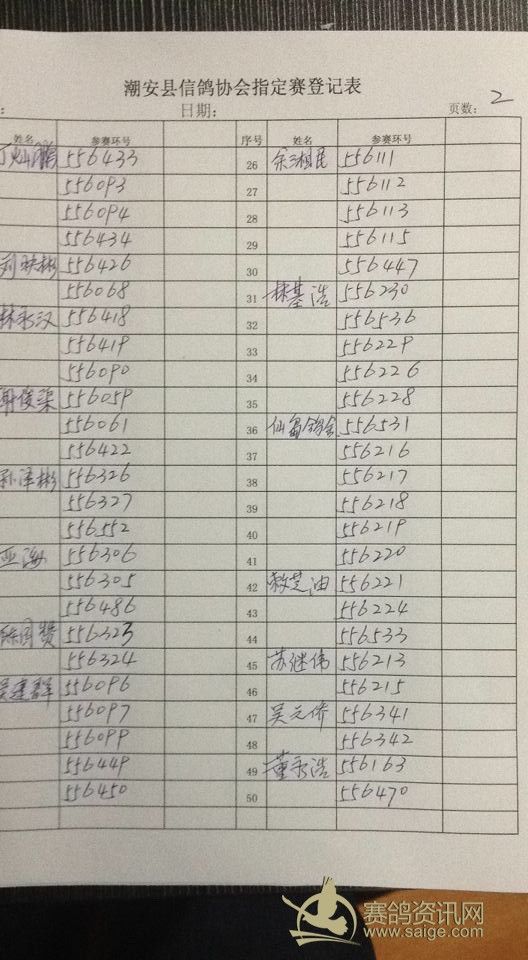 潮安县信鸽协会指定赛登记表
日期： 页数： 2
姓名 参赛环号 序号 姓名 参赛环号
丁灿鹏 556433 26 余湘民 556111
556093 27 556112
556094 28 556113
556434 29 556115
刘映彬 556426 30 556447
556068 31 林基浩 556230
林永汉 556418 32 556536
556419 33 556229
556090 34 556226
谢俊柒 556059 35 556228
556061 36 仙 鸽舍 556531
556422 37 556216
孙泽彬 556326 38 556217
556327 39 556218
556552 40 556219
亚海 556306 41 556220
556305 42 芝油 556221
556486 43 556224
陈图赞 556323 44 556533
556324 45 苏继伟 556213
吴建群 556096 46 556215
556097 47 吴元侨 556341
556099 48 556342
556449 49 董永浩 556163
556450 50 556470
赛鸽资讯网
www.saige.com